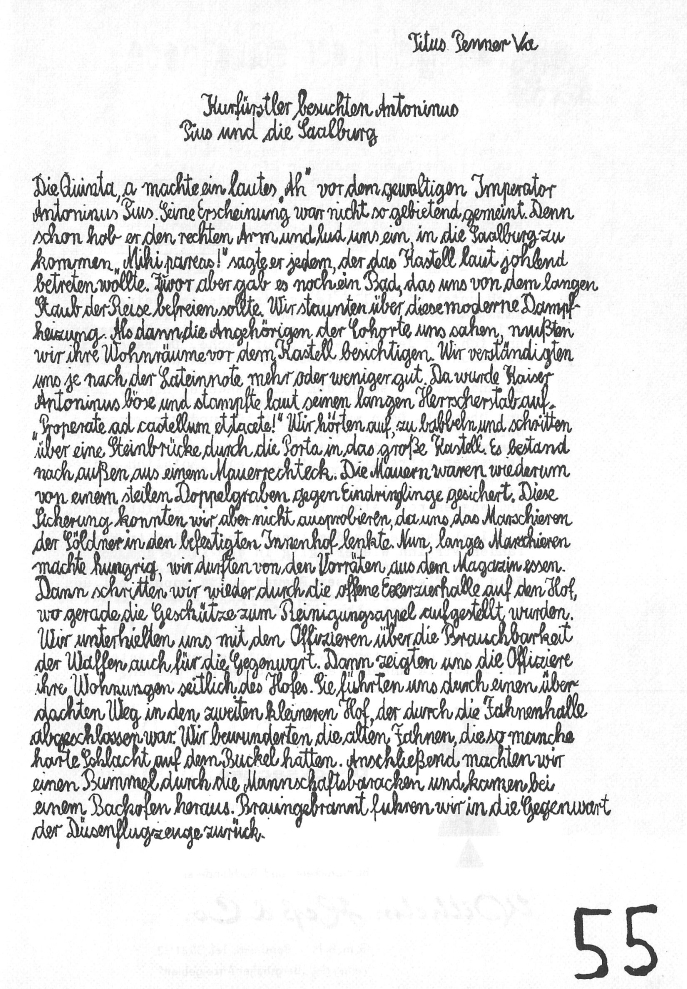 Titus Penner Va
Kurfürstler besuchten Antoninus
Pius und die Saalburg
Die Quinta a machte ein lautes „Ah" vor dem gewaltigen Imperator
Antoninus Pius. Seine Erscheinung war nicht so gebietend gemeint. Denn
schon hob er den rechten Arm und lud uns ein, in die Saalburg zu
kommen. „Mihi pareas!" sagte er jedem, der das Kastell laut johlend
betreten wollte. Zuvor aber gab es noch ein Bad, das uns von dem langen
Staub der Reise befreien sollte. Wir staunten über diese moderne Dampf-
heizung. Als dann die Angehörigen der Cohorte uns sahen, mußten
wir ihre Wohnräume vor dem Kastell besichtigen. Wir verständigten
uns je nach der Lateinnote mehr oder weniger gut. Da wurde Kaiser
Antoninus böse und stampfte laut seinen langen Herrscherstab auf.
„Properate ad castellum et tacete!" Wir hörten auf, zu babbeln und schritten
über eine Steinbrücke durch die Porta in das große Kastell. Es bestand
nach außen aus einem Mauerrechteck. Die Mauern waren wiederum
von einem steilen Doppelgraben gegen Eindringlinge gesichert. Diese
Sicherung konnten wir aber nicht ausprobieren, da uns das Marschieren
der Söldner in den befestigten Innenhof lenkte. Nun, langes Marschieren
machte hungrig, wir durften von den Vorräten aus dem Magazin essen.
Dann schritten wir wieder durch die offene Exerzierhalle auf den Hof,
wo gerade die Geschütze zum Reinigungsappel aufgestellt wurden.
Wir unterhielten uns mit den Offizieren über die Brauchbarkeit
der Waffen auch für die Gegenwart. Dann zeigten uns die Offiziere
ihre Wohnungen seitlich des Hofes. Sie führten uns durch einen über-
dachten Weg in den zweiten kleineren Hof, der durch die Fahnenhalle
abgeschlossen war. Wir bewunderten die alten Fahnen, die so manche
harte Schlacht auf dem Buckel hatten. Anschließend machten wir
einen Bummel durch die Mannschaftsbaracken und kamen bei
einem Backofen heraus. Braungebrannt fuhren wir in die Gegenwart
der Düsenflugzeuge zurück.
55